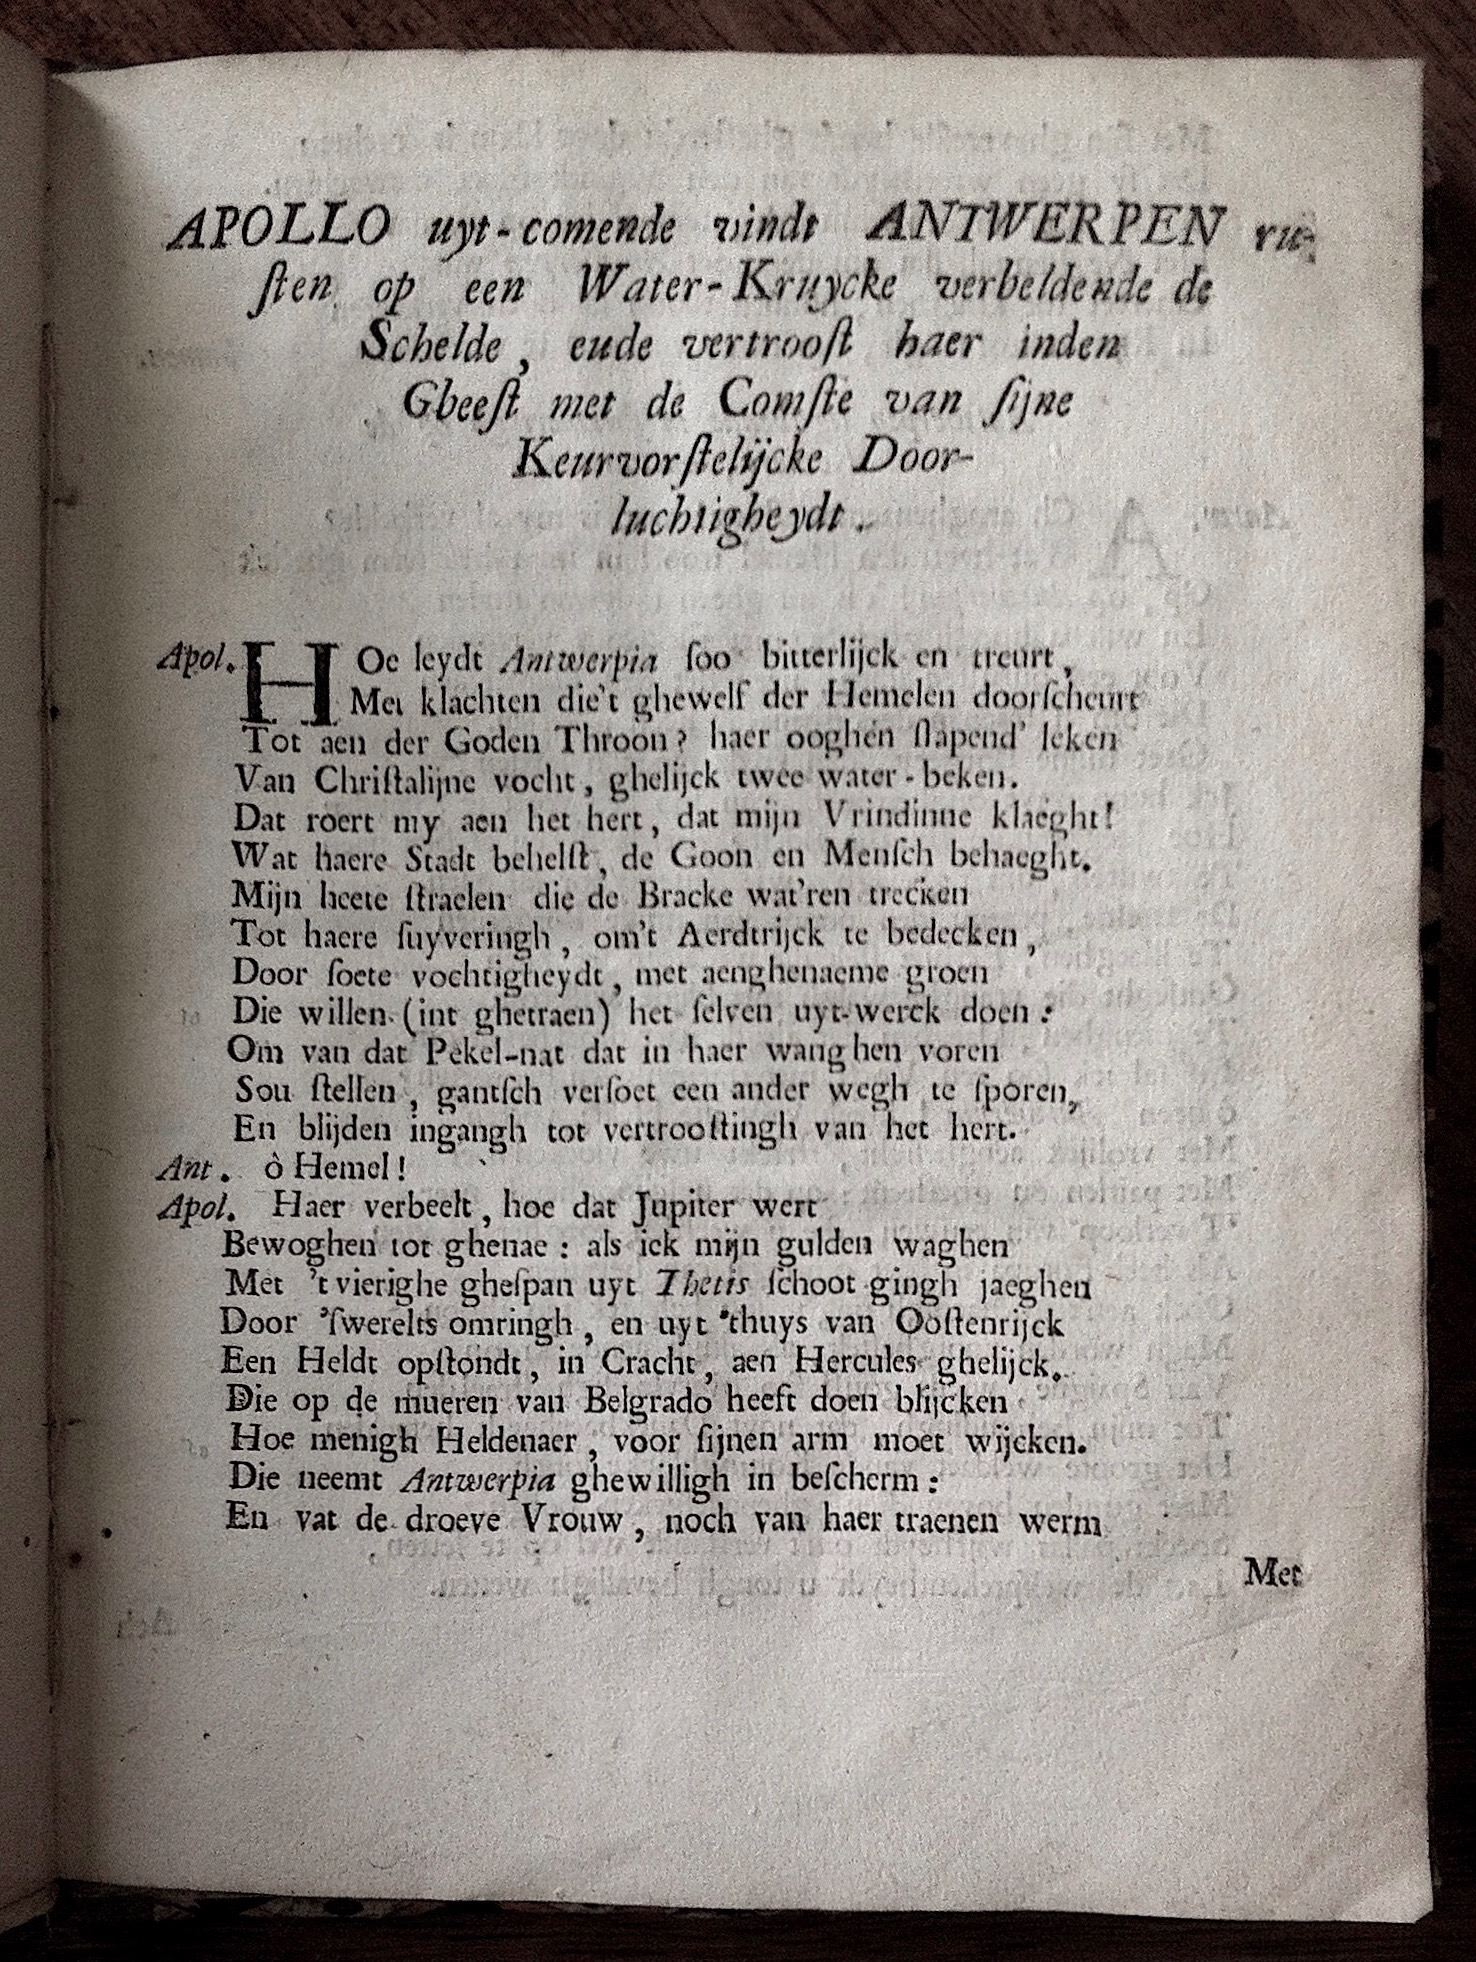 APOLLO uyt-comende vindt ANTWERPEN ru-
ſten op een Water-Kruycke verbeldende de
Schelde, eude vertrooſt haer inden
Gheeſt met de Comſte van ſijne
Keurvorſtelijcke Door-
luchtigheydt.
Apol. HOe leydt Antwerpia ſoo bitterlijck en treurt,
Met klachten die't ghewelf der Hemelen doorſcheurt
Tot aen der Goden Throon? haer ooghen ſlapend' leken
Van Chriſtalijne vocht, ghelijck twee water-beken.
Dat roert my aen het hert, dat mijn Vrindinne klaeght!
Wat haere Stadt behelſt, de Goon en Menſch behaeght.
Mijn heete ſtraelen die de Bracke wat'ren trecken
Tot haere ſuyveringh, om't Aerdtrijck te bedecken,
Door ſoete vochtigheydt, met aenghenaeme groen
Die willen (int ghetraen) het ſelven uyt-werck doen:
Om van dat Pekel-nat dat in haer wanghen voren
Sou ſtellen, gantſch verſoet een ander wegh te ſporen,
En blijden ingangh tot vertrooſtingh van het hert.
Ant. ò Hemel!
Apol. Haer verbeelt, hoe dat Jupiter wert
Bewoghen tot ghenae: als ick mijn gulden waghen
Met 't vierighe gheſpan uyt Thetis ſchoot gingh jaeghen
Door 'ſwerelts omringh, en uyt 'thuys van Ooſtenrijck
Een Heldt opſtondt, in Cracht, aen Hercules ghelijck.
Die op de mueren van Belgrado heeft doen blijcken
Hoe menigh Heldenaer, voor ſijnen arm moet wijcken.
Die neemt Antwerpia ghewilligh in beſcherm:
En vat de droeve Vrouw, noch van haer traenen werm
Met